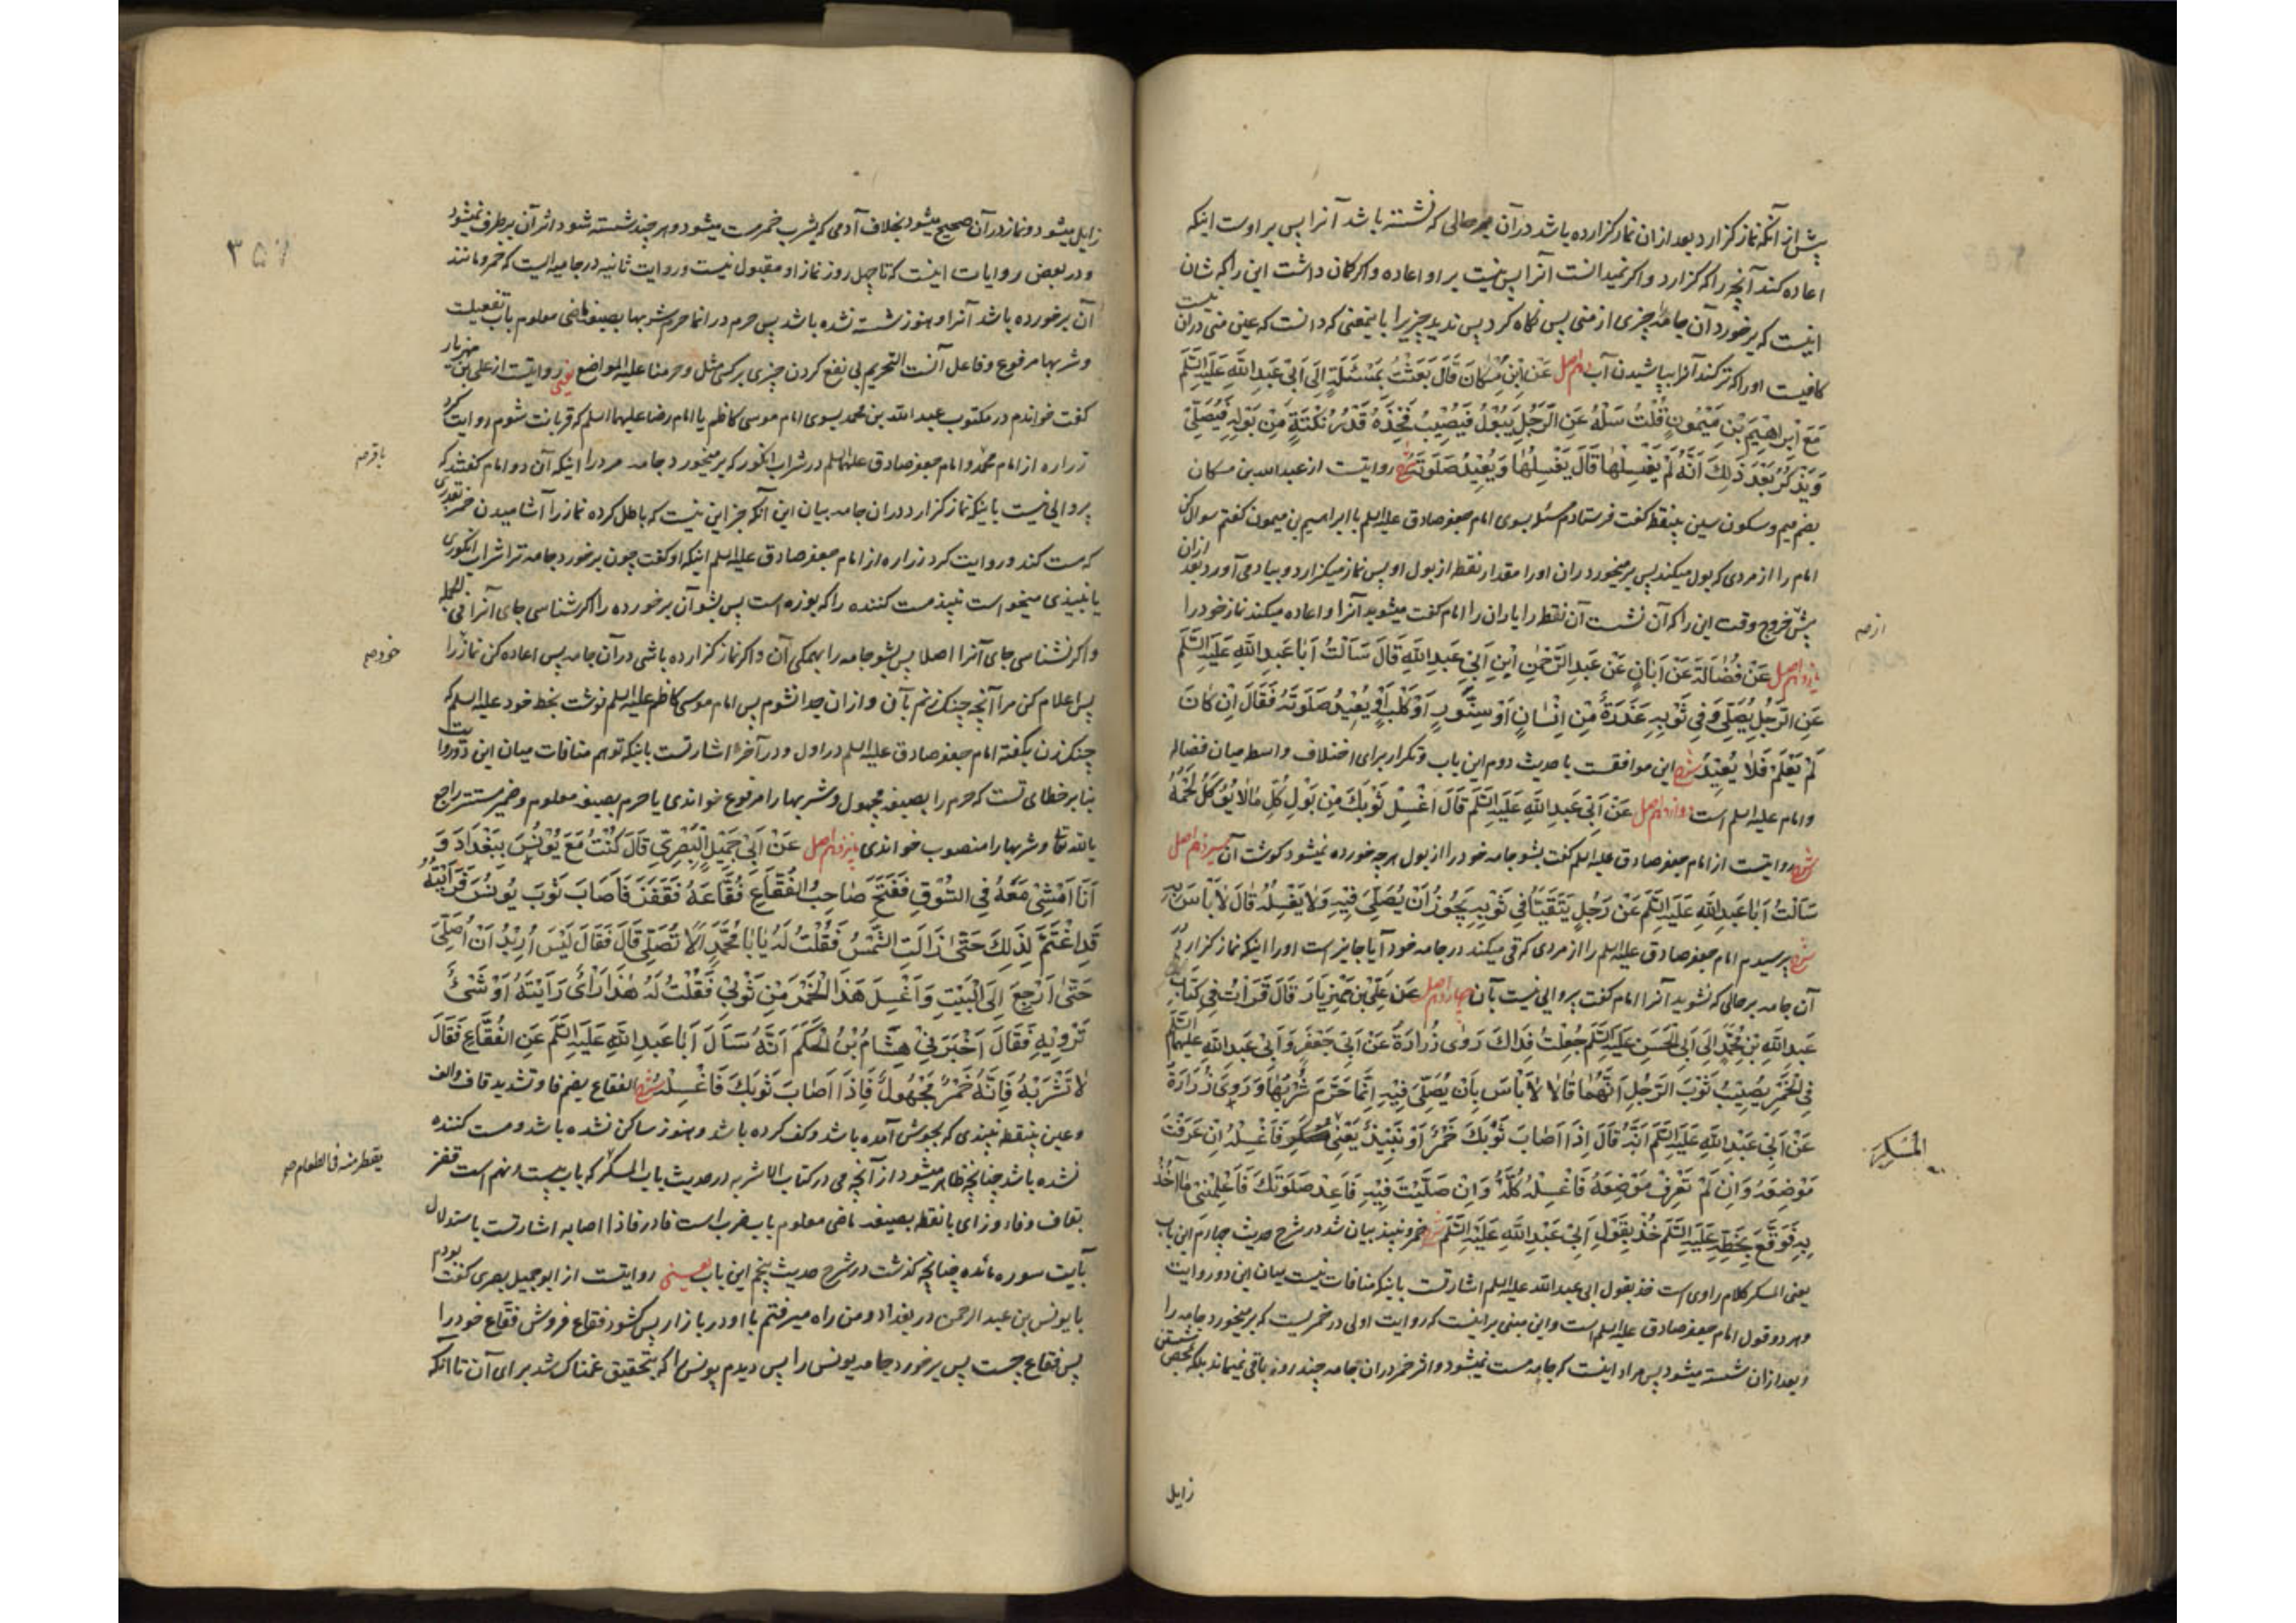 پیش از آنکه نماز کزارد بعد از ان نماز کزارده باشد در آن بر حالی که نشسته باشد آنرا پس بر اوست اینکه
اعاده کند آنچه را که کزارد و اکر نمیدانست آنرا پس نیست بر او اعاده و اکر کمان داشت این را که شان
اینست که برخورد آن جامه را چیزی از منی پس نکاه کرد پس ندید چیزیرا باینمعنی که دانست که عین منی در ان نیست
کافیست او را که تر کند آنرا بپاشیدن آب دهم اصل عَنْ اِبْنِ مُسْكَانَ قَالَ بَعَثْتُ بِمَسْئَلَةٍ اِلَى اَبِي عَبْدِ اللّٰهِ عَلَيْهِ السَّلَم
مَعَ اِبْرٰهِيْمَ بْنِ مَيْمُونٍ قُلْتُ سَلْهُ عَنِ الرَّجُلِ يَبُوْلُ فَيُصِيْبُ فَخِذَهُ قَدْرُ نُكْتَةٍ مِنْ بَوْلِهِ فَيُصَلِّيْ
وَيَذْكُرُ بَعْدَ ذٰلِكَ اَنَّهُ لَمْ يَغْسِلْهَا قَالَ يَغْسِلُهَا وَيُعِيْدُ صَلَوتَهُ شرح روایتست از عبدالله بن مسکان
بضم میم و سکون سین بینقطه کفت فرستادم مسئله بسوی امام جعفر صادق علیه السلم با ابراهیم بن میمون کفتم سوال کن
امام را از مردی که بول میکند پس برمیخورد ران او را مقدار نقطه از بول او پس نماز میکزارد و بیاد می آورد بعد از ان
پیش خروج وقت این را که آن نشست آن نقطه را یا ران را امام کفت میشوید آنرا و اعاده میکند نماز خود را
از صح
یازدهم اصل عَنْ فُضَالَةَ عَنْ اَبَانٍ عَنْ عَبْدِ الرَّحْمٰنِ ابْنِ اَبِيْ عَبْدِ اللّٰهِ قَالَ سَاَلْتُ اَبَا عَبْدِ اللّٰهِ عَلَيْهِ السَّلَم
عَنِ الرَّجُلِ يُصَلِّيْ وَفِي ثَوْبِهِ عَذَرَةٌ مِنْ اِنْسَانٍ اَوْ سِنَّوْرٍ اَوْ كَلْبٍ اَوْ يُعِيْدُ صَلَوتَهُ فَقَالَ اِنْ كَانَ
لَمْ يَعْلَمْ فَلَا يُعِيْدُ شرح این موافقست با حدیث دوم این باب و تکرار برای اختلاف واسطه میان فضاله
و امام علیه السلم است دوازدهم اصل عَنْ اَبِيْ عَبْدِ اللّٰهِ عَلَيْهِ السَّلَم قَالَ اغْسِلْ ثَوْبَكَ مِنْ بَوْلِ كُلِّ مَا لَا يُؤْكَلُ لَحْمُهُ
شرح روایتست از امام جعفر صادق علیه السلم کفت بشو جامه خود را از بول هر چه خورده نمیشود کوشت آن سیزدهم اصل
سَاَلْتُ اَبَا عَبْدِ اللّٰهِ عَلَيْهِ السَّلَم عَنْ رَجُلٍ يَتَقَيَّأُ فِي ثَوْبِهِ يَجُوْزُ اَنْ يُصَلِّيَ فِيْهِ وَلَا يَغْسِلُهُ قَالَ لَا بَأْسَ بِهِ
شرح پرسیدم امام جعفر صادق علیه السلم را از مردی که قی میکند در جامه خود آیا جایز است او را اینکه نماز کزارد در
آن جامه بر حالی که نشوید آنرا امام کفت پروایی نیست بآن چهاردهم اصل عَنْ عَلِيِّ بْنِ مَهْزِيَارَ قَالَ قَرَأْتُ فِيْ كِتَابِ
عَبْدِ اللّٰهِ بْنِ مُحَمَّدٍ اِلَى اَبِي الْحَسَنِ عَلَيْهِ السَّلَم جُعِلْتُ فِدَاكَ رَوٰى زُرَارَةُ عَنْ اَبِي جَعْفَرٍ وَاَبِيْ عَبْدِ اللّٰهِ عَلَيْهِمَا السَّلَم
فِي الْخَمْرِ يُصِيْبُ ثَوْبَ الرَّجُلِ اَنَّهُمَا قَالَا لَا بَأْسَ بِاَنْ يُصَلِّيَ فِيْهِ اِنَّمَا حَرَّمَ شُرْبَهَا وَرَوٰى زُرَارَةُ
عَنْ اَبِيْ عَبْدِ اللّٰهِ عَلَيْهِ السَّلَم اَنَّهُ قَالَ اِذَا اَصَابَ ثَوْبَكَ خَمْرٌ اَوْ نَبِيْذٌ يَعْنِيْ فَاغْسِلْهُ اِنْ عَرَفْتَ
المُسْكِرَ
مَوْضِعَهُ وَاِنْ لَمْ تَعْرِفْ مَوْضِعَهُ فَاغْسِلْهُ كُلَّهُ وَاِنْ صَلَّيْتَ فِيْهِ فَاَعِدْ صَلَوتَكَ فَاَعْلِمْنِيْ مَا آخُذُ
بِهِ فَوَقَّعَ بِخَطِّهِ عَلَيْهِ السَّلَم خُذْ بِقَوْلِ اَبِيْ عَبْدِ اللّٰهِ عَلَيْهِ السَّلَم شرح خمر و نبیذ بیان شد در شرح حدیث چهارم این باب
یعنی المسکر کلام راوی است خذ بقول ابی عبدالله علیه السلم اشارتست باینکه منافات نیست میان این دو روایت
و هر دو قول امام جعفر صادق علیه السلم است و این مبنی بر اینست که روایت اولی در خمریست که برمیخورد جامه را
و بعد از ان شسته میشود پس مراد اینست که جامه مست نمیشود و اثر خمر در ان جامه چند روز باقی نمیماند بلکه بمحض شستن
زایل
۳۵۷
زایل میشود و نماز در آن صحیح میشود بخلاف آدمی که بشرب خمر مست میشود و هر چند شسته شود اثر آن برطرف نمیشود
و در بعض روایات اینست که تا چهل روز نماز او مقبول نیست و روایت ثانیه در جامه ایست که خمر و مانند
آن برخورده باشد آنرا و هنوز شسته نشده باشد پس حرم در انما حرم شربها بصیغه ماضی معلوم باب تفعیلست
و شربها مرفوع و فاعل آنست التحریم بی نفع کردن چیزی بر کسی مثل و حرمنا علیه المراضع یعنی روایتست از علی بن مهزیار
کفت خواندم در مکتوب عبدالله بن محمد بسوی امام موسی کاظم یا امام رضا علیهما السلم که قربانت شوم روایت کرد
زراره از امام محمد و امام جعفر صادق علیهما السلم در شراب انکور که برمیخورد جامه مرد را اینکه آن دو امام کفتند که
باقر صح
پروایی نیست باینکه نماز کزارد در ان جامه بیان این آنکه جز این نیست که باطل کرده نماز را آشامیدن خمر بقدری
که مست کند و روایت کرد زراره از امام جعفر صادق علیه السلم اینکه او کفت چون برخورد جامه ترا شراب انکوری
یا نبیذی میخواست نبیذ مست کننده را که بوزه است پس بشو آن برخورده را اکر شناسی جای آنرا فی الجمله
و اکر نشناسی جای آنرا اصلا پس بشو جامه را بهمکی آن و اکر نماز کزارده باشی در آن جامه پس اعاده کن نماز را
خود صح
پس اعلام کن مرا آنچه چنک زنم بآن و از ان جدا نشوم پس امام موسی کاظم علیه السلم نوشت بخط خود علیه السلم که
چنک زن بکفته امام جعفر صادق علیه السلم در اول و در آخر اشارتست باینکه توهم منافات میان این دو روایت
بنابر خطای تست که حرم را بصیغه مجهول و شربها را مرفوع خواندی یا حرم بصیغه معلوم و ضمیر مستتر راجع
بالله تعا و شربها را منصوب خواندی پانزدهم اصل عَنْ اَبِيْ جَمِيْلٍ الْبَصْرِيِّ قَالَ كُنْتُ مَعَ يُوْنُسَ بِبَغْدَادَ وَ
اَنَا اَمْشِيْ مَعَهُ فِي السُّوْقِ فَفَتَحَ صَاحِبُ الْفُقَّاعِ فُقَّاعَهُ فَقَفَزَ فَاَصَابَ ثَوْبَ يُوْنُسَ فَرَاَيْتُهُ
قَدِ اغْتَمَّ لِذٰلِكَ حَتّٰى زَالَتِ الشَّمْسُ فَقُلْتُ لَهُ يَا بَا مُحَمَّدٍ اَلَا تُصَلِّي قَالَ فَقَالَ لَيْسَ اُرِيْدُ اَنْ اُصَلِّيَ
حَتّٰى اَرْجِعَ اِلَى الْبَيْتِ وَاَغْسِلَ هَذَا الْخَمْرَ مِنْ ثَوْبِيْ فَقُلْتُ لَهُ هٰذَا رَأْيٌ رَاَيْتَهُ اَوْ شَيْءٌ
تَرْوِيْهِ فَقَالَ اَخْبَرَنِيْ هِشَامُ بْنُ الْحَكَمِ اَنَّهُ سَاَلَ اَبَا عَبْدِ اللّٰهِ عَلَيْهِ السَّلَم عَنِ الْفُقَّاعِ فَقَالَ
لَا تَشْرَبْهُ فَاِنَّهُ خَمْرٌ مَجْهُولٌ فَاِذَا اَصَابَ ثَوْبَكَ فَاغْسِلْهُ شرح الفقاع بضم فا و تشدید قاف و الف
و عین بینقطه نبیذی که بجوش آمده باشد و کف کرده باشد و هنوز ساکن نشده باشد و مست کننده
نشده باشد چنانچه ظاهر میشود از آنچه می در کتاب الاشربه در حدیث باب المسکر که باب بیست و نهم است قفز
یقطر منه فی الطعام صح
بقاف و فا و زای با نقطه بصیغه ماضی معلوم باب ضرب است فا در فاذا اصابه اشارتست باستدلال
بآیت سوره مائده چنانچه کذشت در شرح حدیث پنجم این باب یعنی روایتست از ابوجمیل بصری کفت بودم
با یونس بن عبد الرحمن در بغداد و من راه میرفتم با او در بازار پس کشود فقاع فروش فقاع خود را
پس فقاع جست پس برخورد جامه یونس را پس دیدم یونس را که بتحقیق غمناک شد برای آن تا آنکه